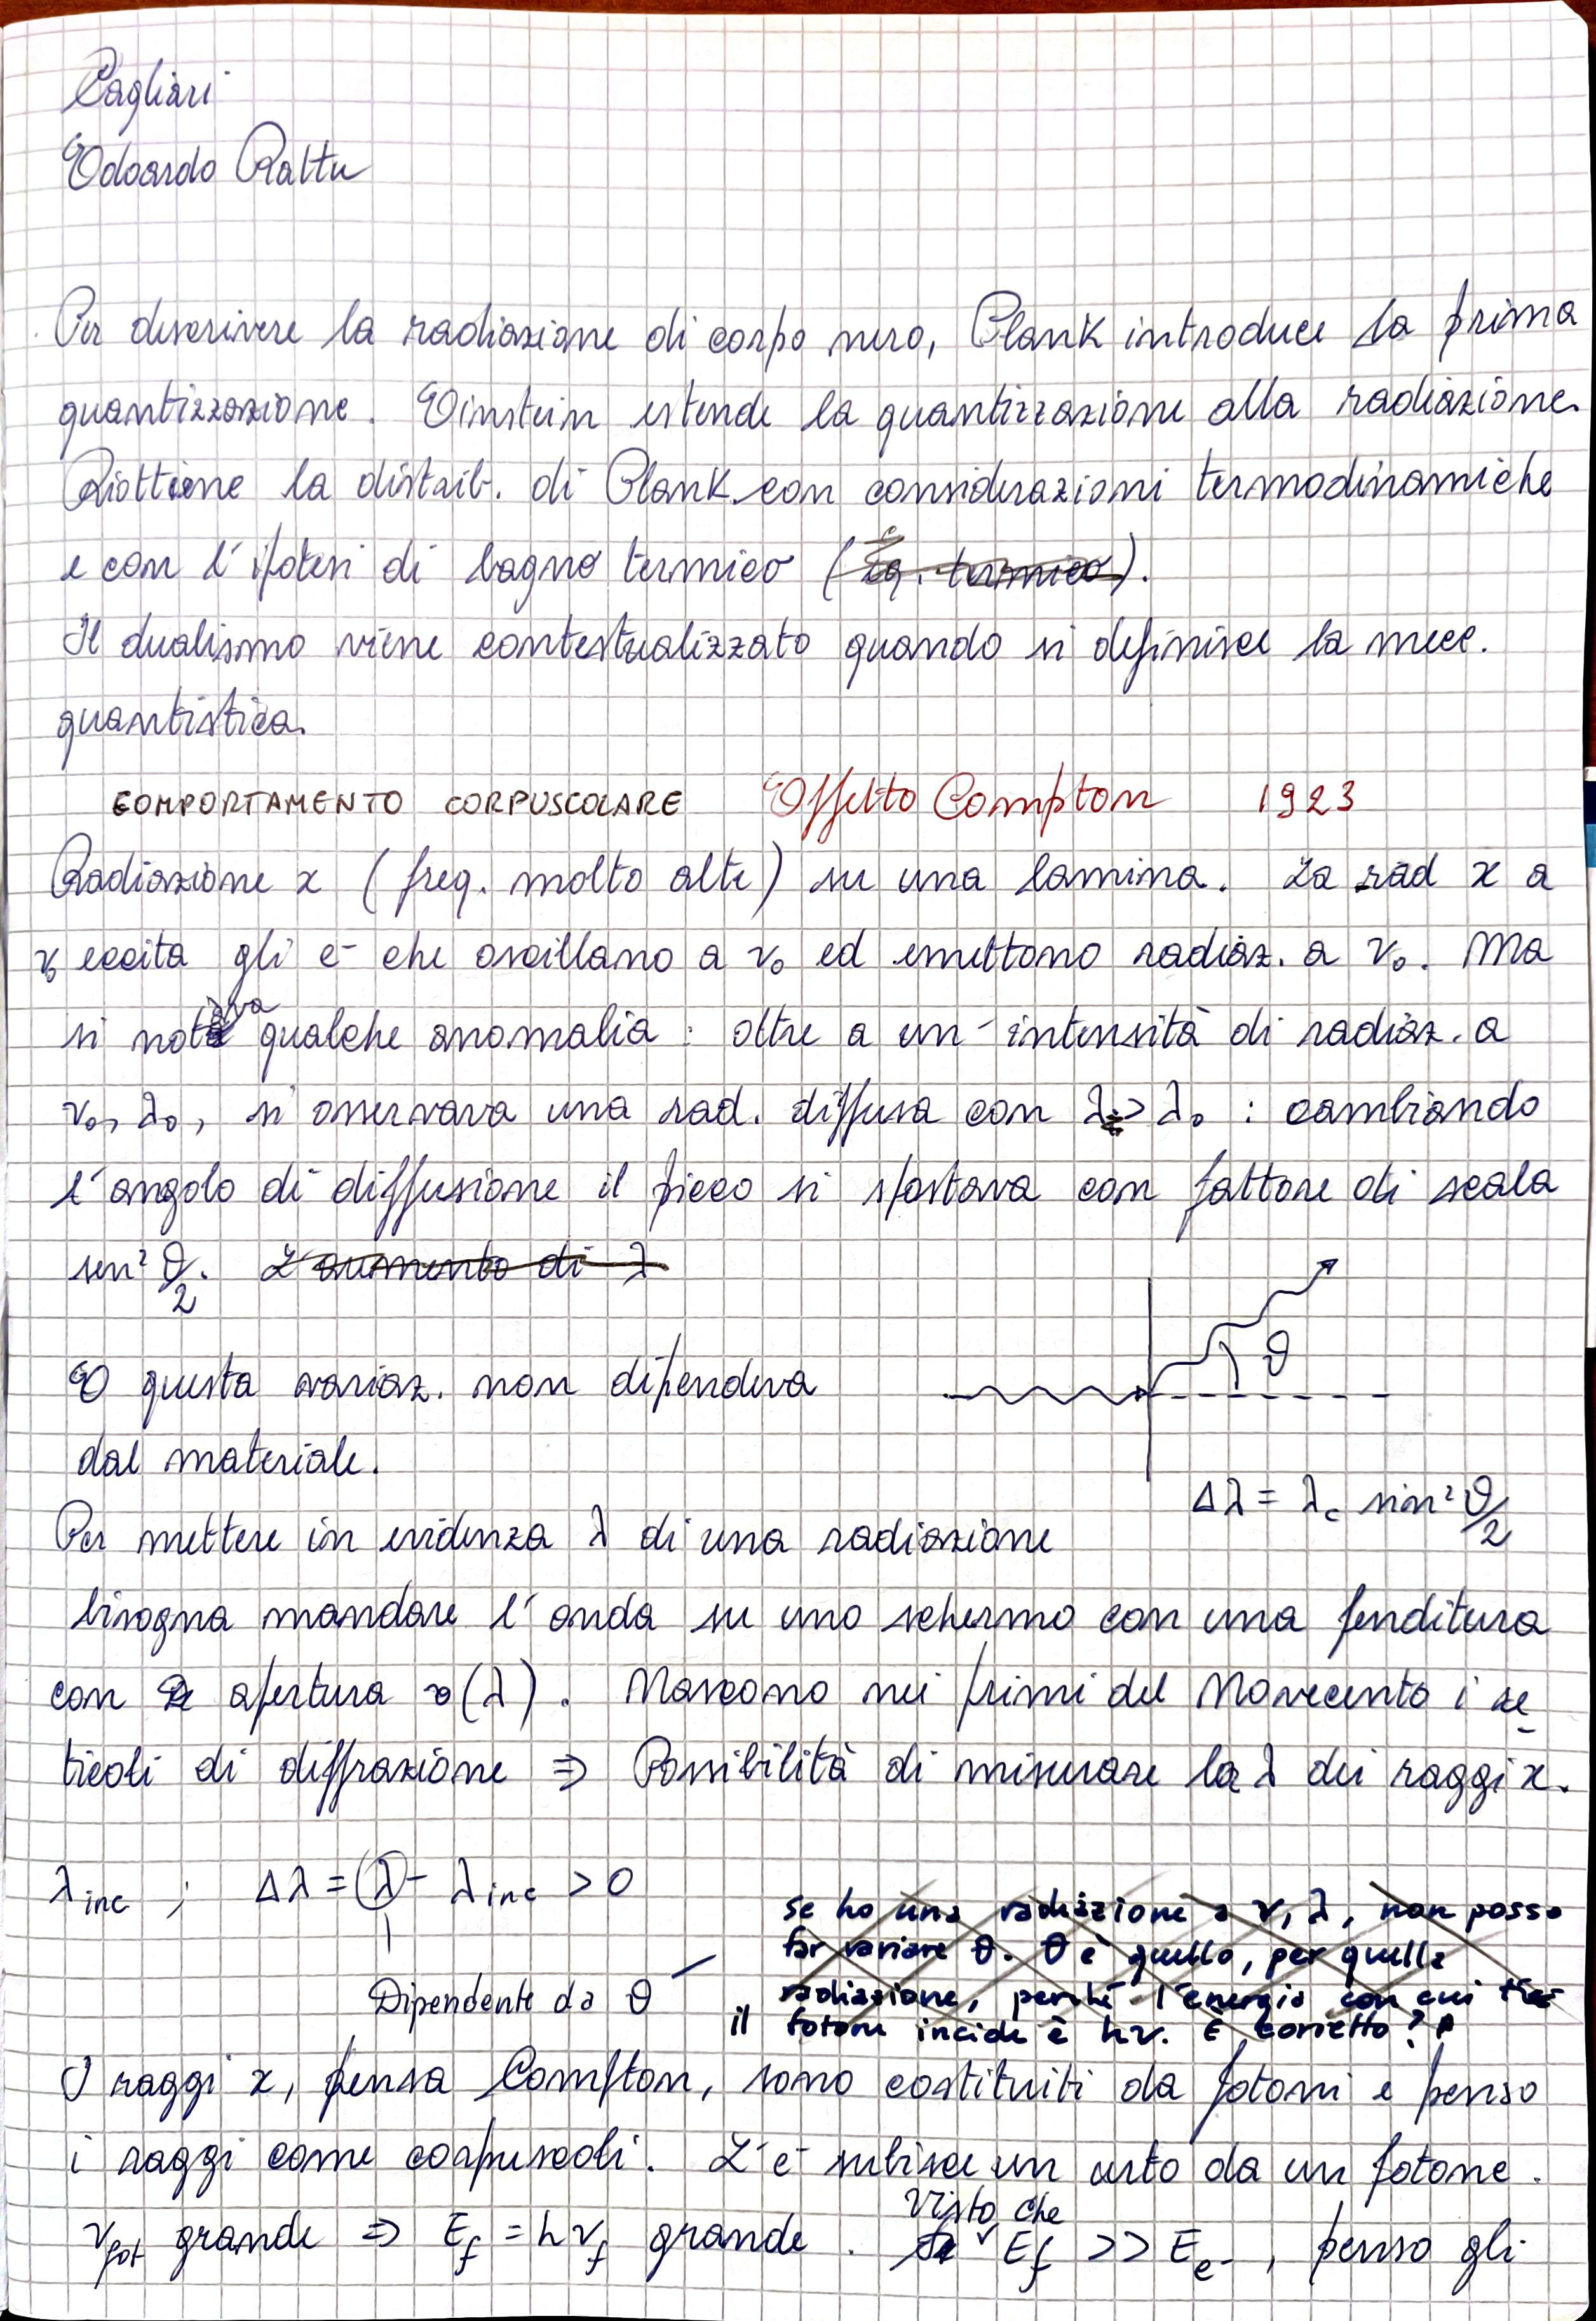 Cagliari
Edoardo Rattu
Per descrivere la radiazione di corpo nero, Plank introduce la prima
quantizzazione. Einstein estende la quantizzazione alla radiazione.
Riottiene la distrib. di Plank con considerazioni termodinamiche
e con l'ipotesi di bagno termico (Eq. termico).
Il dualismo viene contestualizzato quando si definisce la mecc.
quantistica.
COMPORTAMENTO CORPUSCOLARE Effetto Compton 1923
Radiazione x (freq. molto alte) su una lamina. La rad x a
ν₀ eccita gli e⁻ che oscillano a ν₀ ed emettono radiaz. a ν₀. Ma
si notava qualche anomalia: oltre a un'intensità di radiaz. a
ν₀, λ₀, si osservava una rad. diffusa con λ > λ₀ : cambiando
l'angolo di diffusione il picco si spostava con fattore di scala
sen² θ/2. L'aumento di λ
E questa variaz. non dipendeva
θ
dal materiale.
Δλ = λc sin² θ/2
Per mettere in evidenza λ di una radiazione
bisogna mandare l'onda su uno schermo con una fenditura
con apertura o(λ). Nascono nei primi del Novecento i re
ticoli di diffrazione ⇒ Possibilità di misurare la λ dei raggi x.
λinc ; Δλ = λ - λinc > 0
Dipendente da θ
se ho una radiazione a ν, λ, non posso
far variare θ. θ è quello, per quella
radiazione, perché l'energia con cui
il fotone incide è hν. È corretto?
I raggi x, pensa Compton, sono costituiti da fotoni e penso
i raggi come corpuscoli. L'e⁻ subisce un urto da un fotone.
νfot grande ⇒ Ef = hνf grande. Visto che Ef >> Ee⁻, penso gli